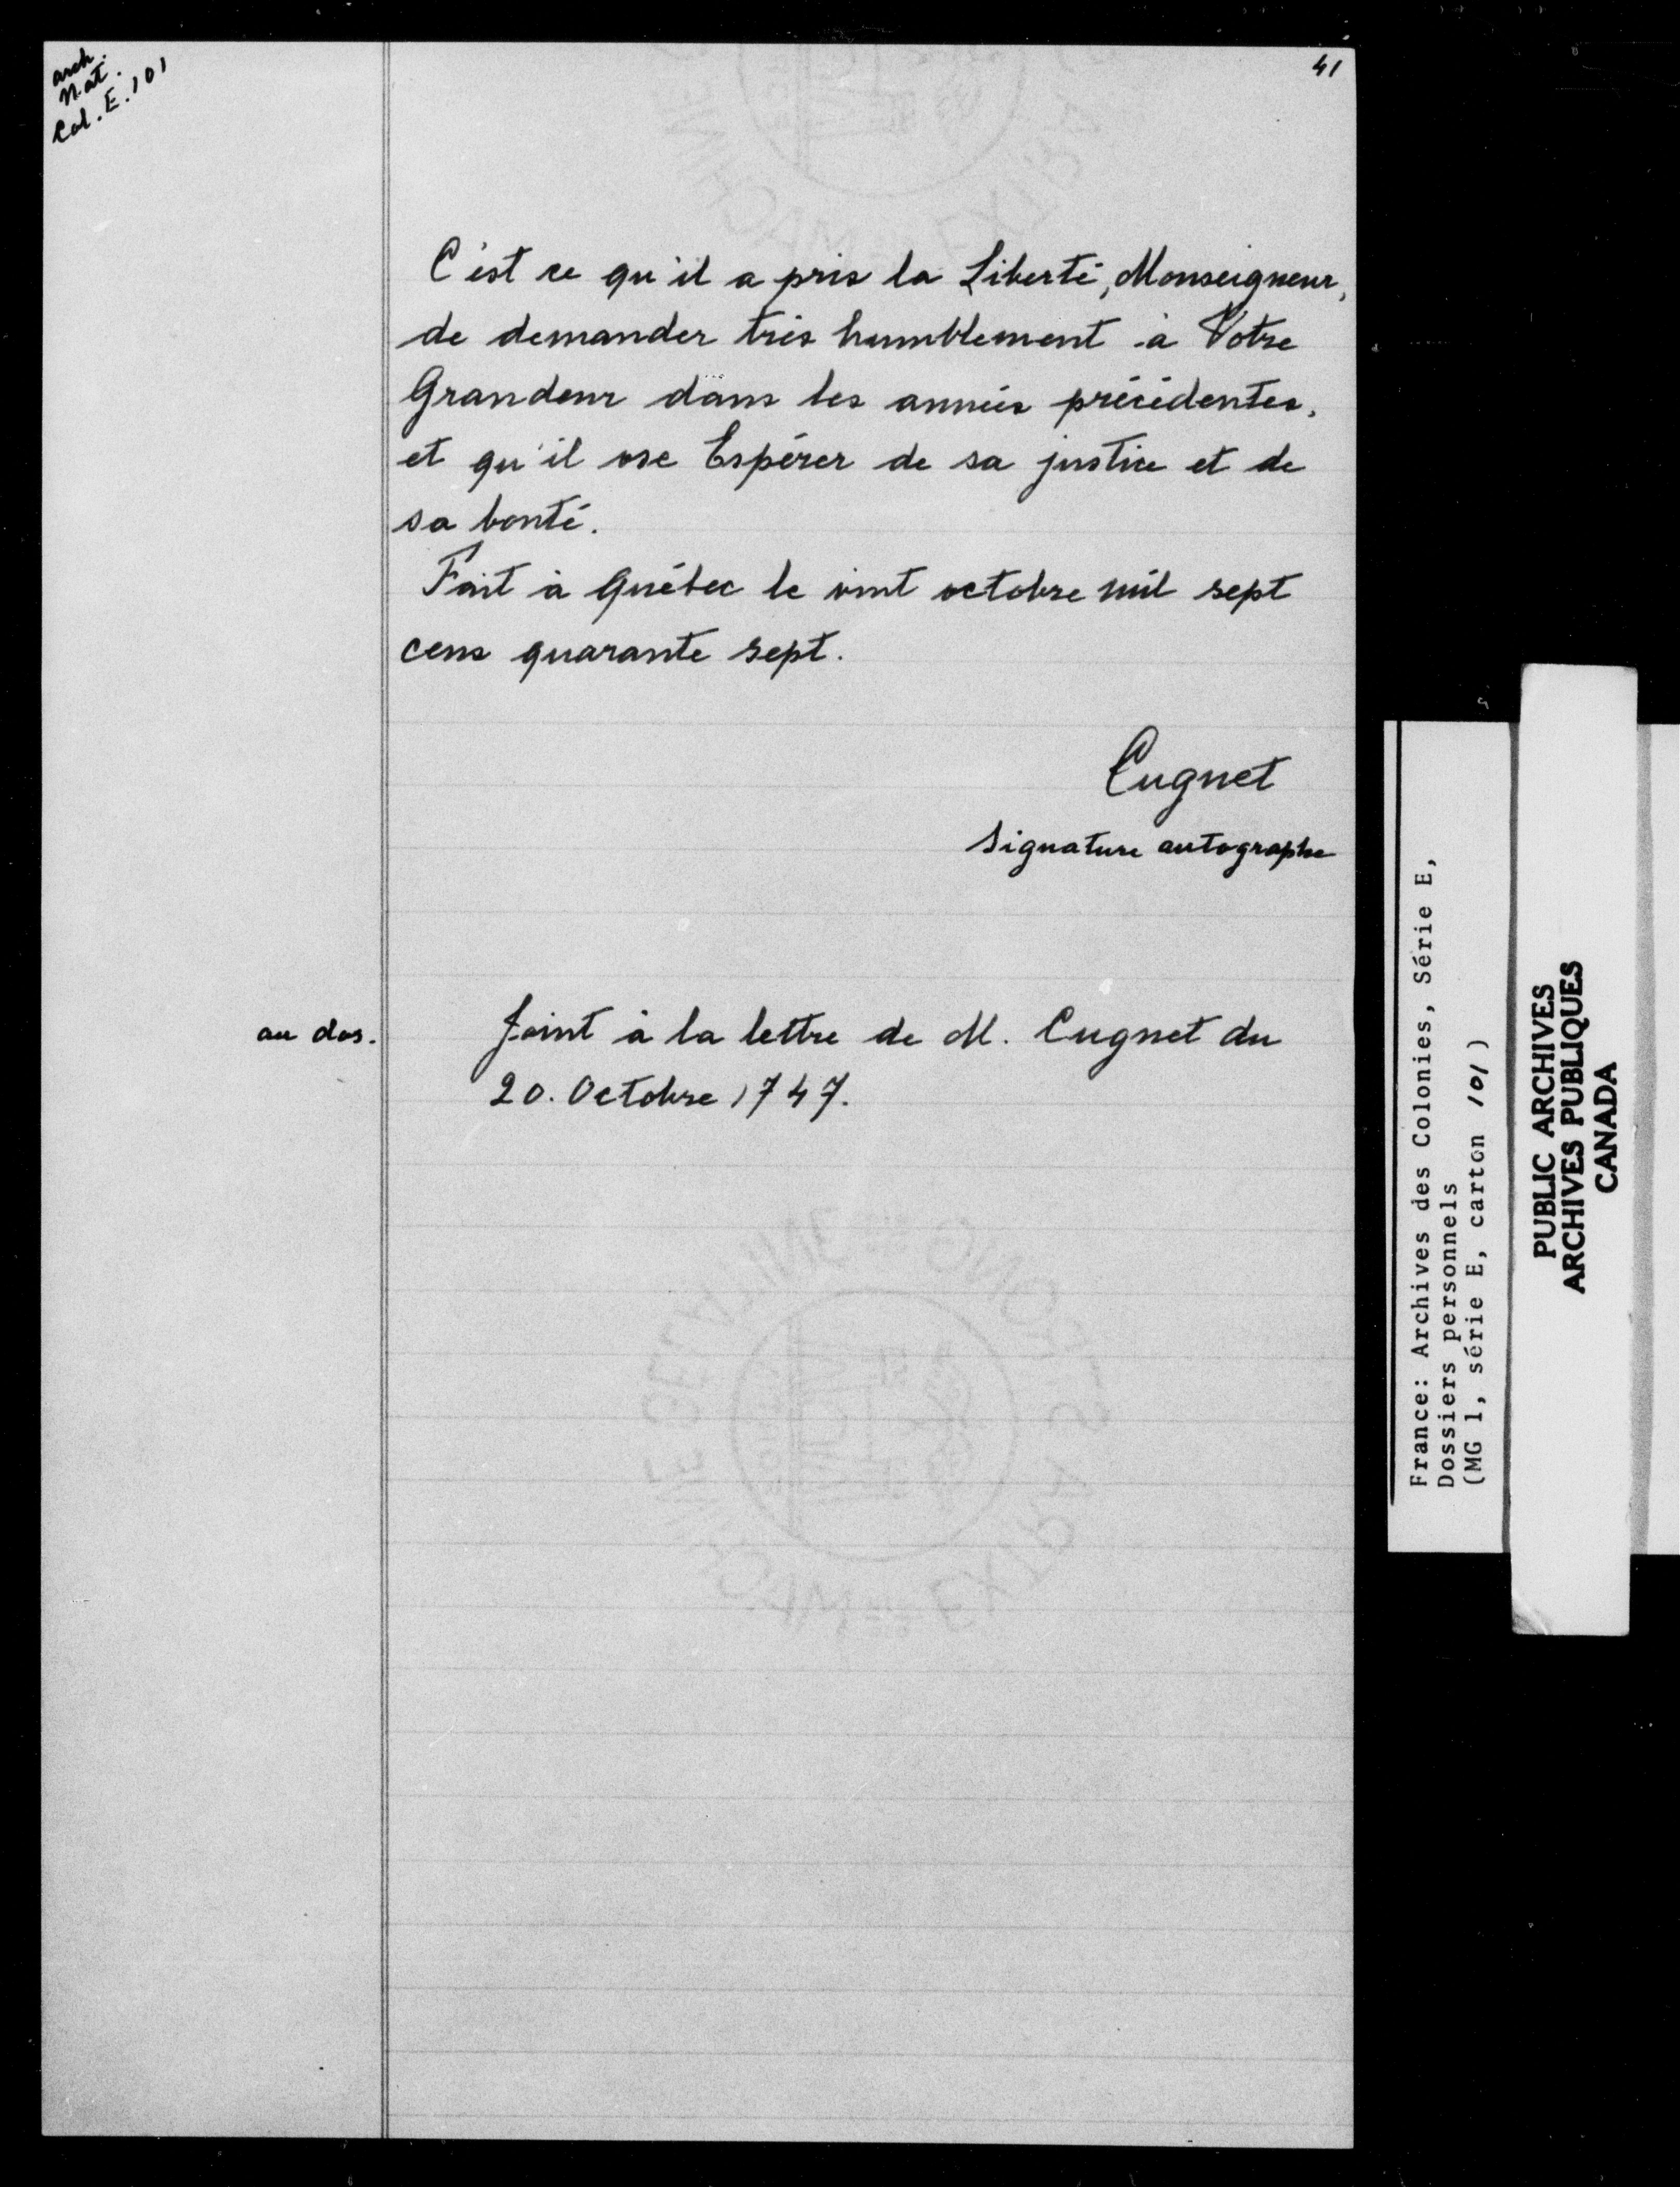 arch.
Nat.
Col. E. 101
41
C'est ce qu'il a pris la Liberté, Monseigneur,
de demander très humblement à Votre
Grandeur dans les années précédentes,
et qu'il ose Espérer de sa justice et de
sa bonté.
Fait à Québec le vint octobre mil sept
cens quarante sept.
Cugnet
signature autographe
au dos.
Joint à la lettre de M. Cugnet du
20. Octobre 1747.
France: Archives des Colonies, Série E,
Dossiers personnels
(MG 1, série E, carton 101)
PUBLIC ARCHIVES
ARCHIVES PUBLIQUES
CANADA